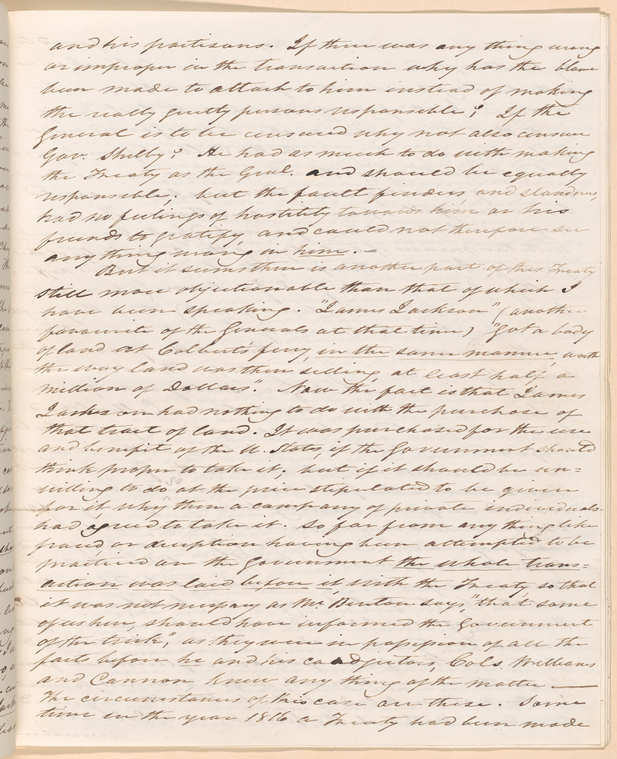 and his partisans. If there was any thing wrong
or improper in the transaction why has the blame
been made to attach to him instead of making
the really guilty persons responsible? If the
General is to be censured why not also censure
Gov. Shelby? He had as much to do with making
the Treaty as the Genl. and should be equally
responsible; but the fault finders and slanderers
had no feelings of hostility towards him or his
friends to gratify and could not therefore see
any thing wrong in him. –
But it seems there is another part of this Treaty
still more objectionable than that of which I
have been speaking. "James Jackson" (another
favourite of the Generals at that time) "got a body
of land at Colberts ferry, in the same manner, worth
the way land was then selling at least half a
million of Dollars". Now the fact is that James
Jackson had nothing to do with the purchase of
that tract of land. It was purchased for the use
and benefit of the U. States, if the Government should
think proper to take it; but if it should be un=
willing to do so at the price stipulated to be given
for it, why then a company of private individuals
had agreed to take it. So far from any thing like
fraud or deception having been attempted to be
practiced on the Government the whole trans=
action was laid before it with the Treaty so that
it was not necessary as Mr. Benton says, "that some
of us here, should have informed the Government
of the trick", as they were in possession of all the
facts before he and his coadjutors, Cols. Williams
and Cannon knew any thing of the matter –
The circumstances of this case are these. Some
time in the year 1816 a Treaty had been made